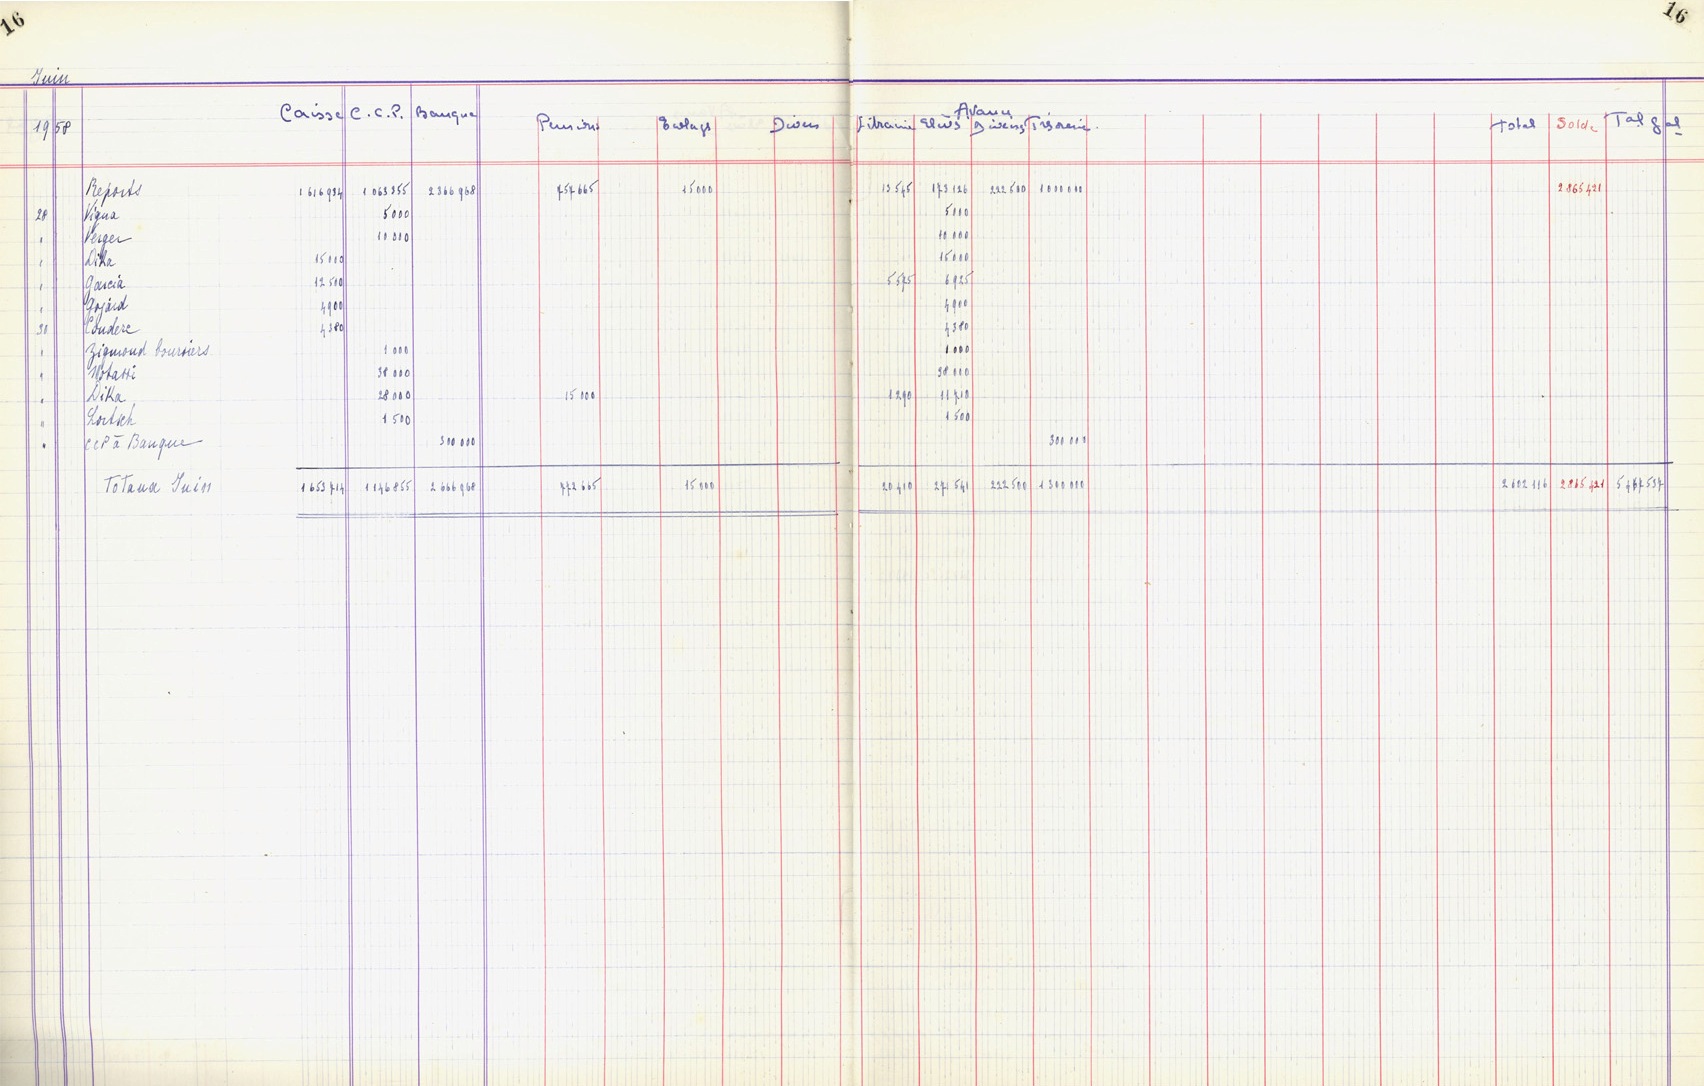 16 16
Juin
1958 Caisse C.C.P. Banque Pension Eclags Divers Avances
Librairie Elèves Divers Trésorerie Total Solde Tal gal
Reports 1 616 934 1 063 355 2 366 968 757 665 15 000 13 545 173 126 222 500 1 000 000 2 865 421
28 Vigna 5 000 5 000
" Verger 10 000 10 000
" Dika 15 000 15 000
" Garcia 12 500 5 575 6 925
" Gojard 4 900 4 900
30 Couderc 4 380 4 380
" Zigmond boursiers 1 000 1 000
" 38 000 38 000
" Dika 28 000 15 000 1 290 11 710
" Lortsch 1 500 1 500
" CCP à Banque 300 000 300 000
Totaux Juin 1 653 714 1 146 855 2 666 968 772 665 15 000 20 410 271 541 222 500 1 300 000 2 602 116 2 865 421 5 467 537